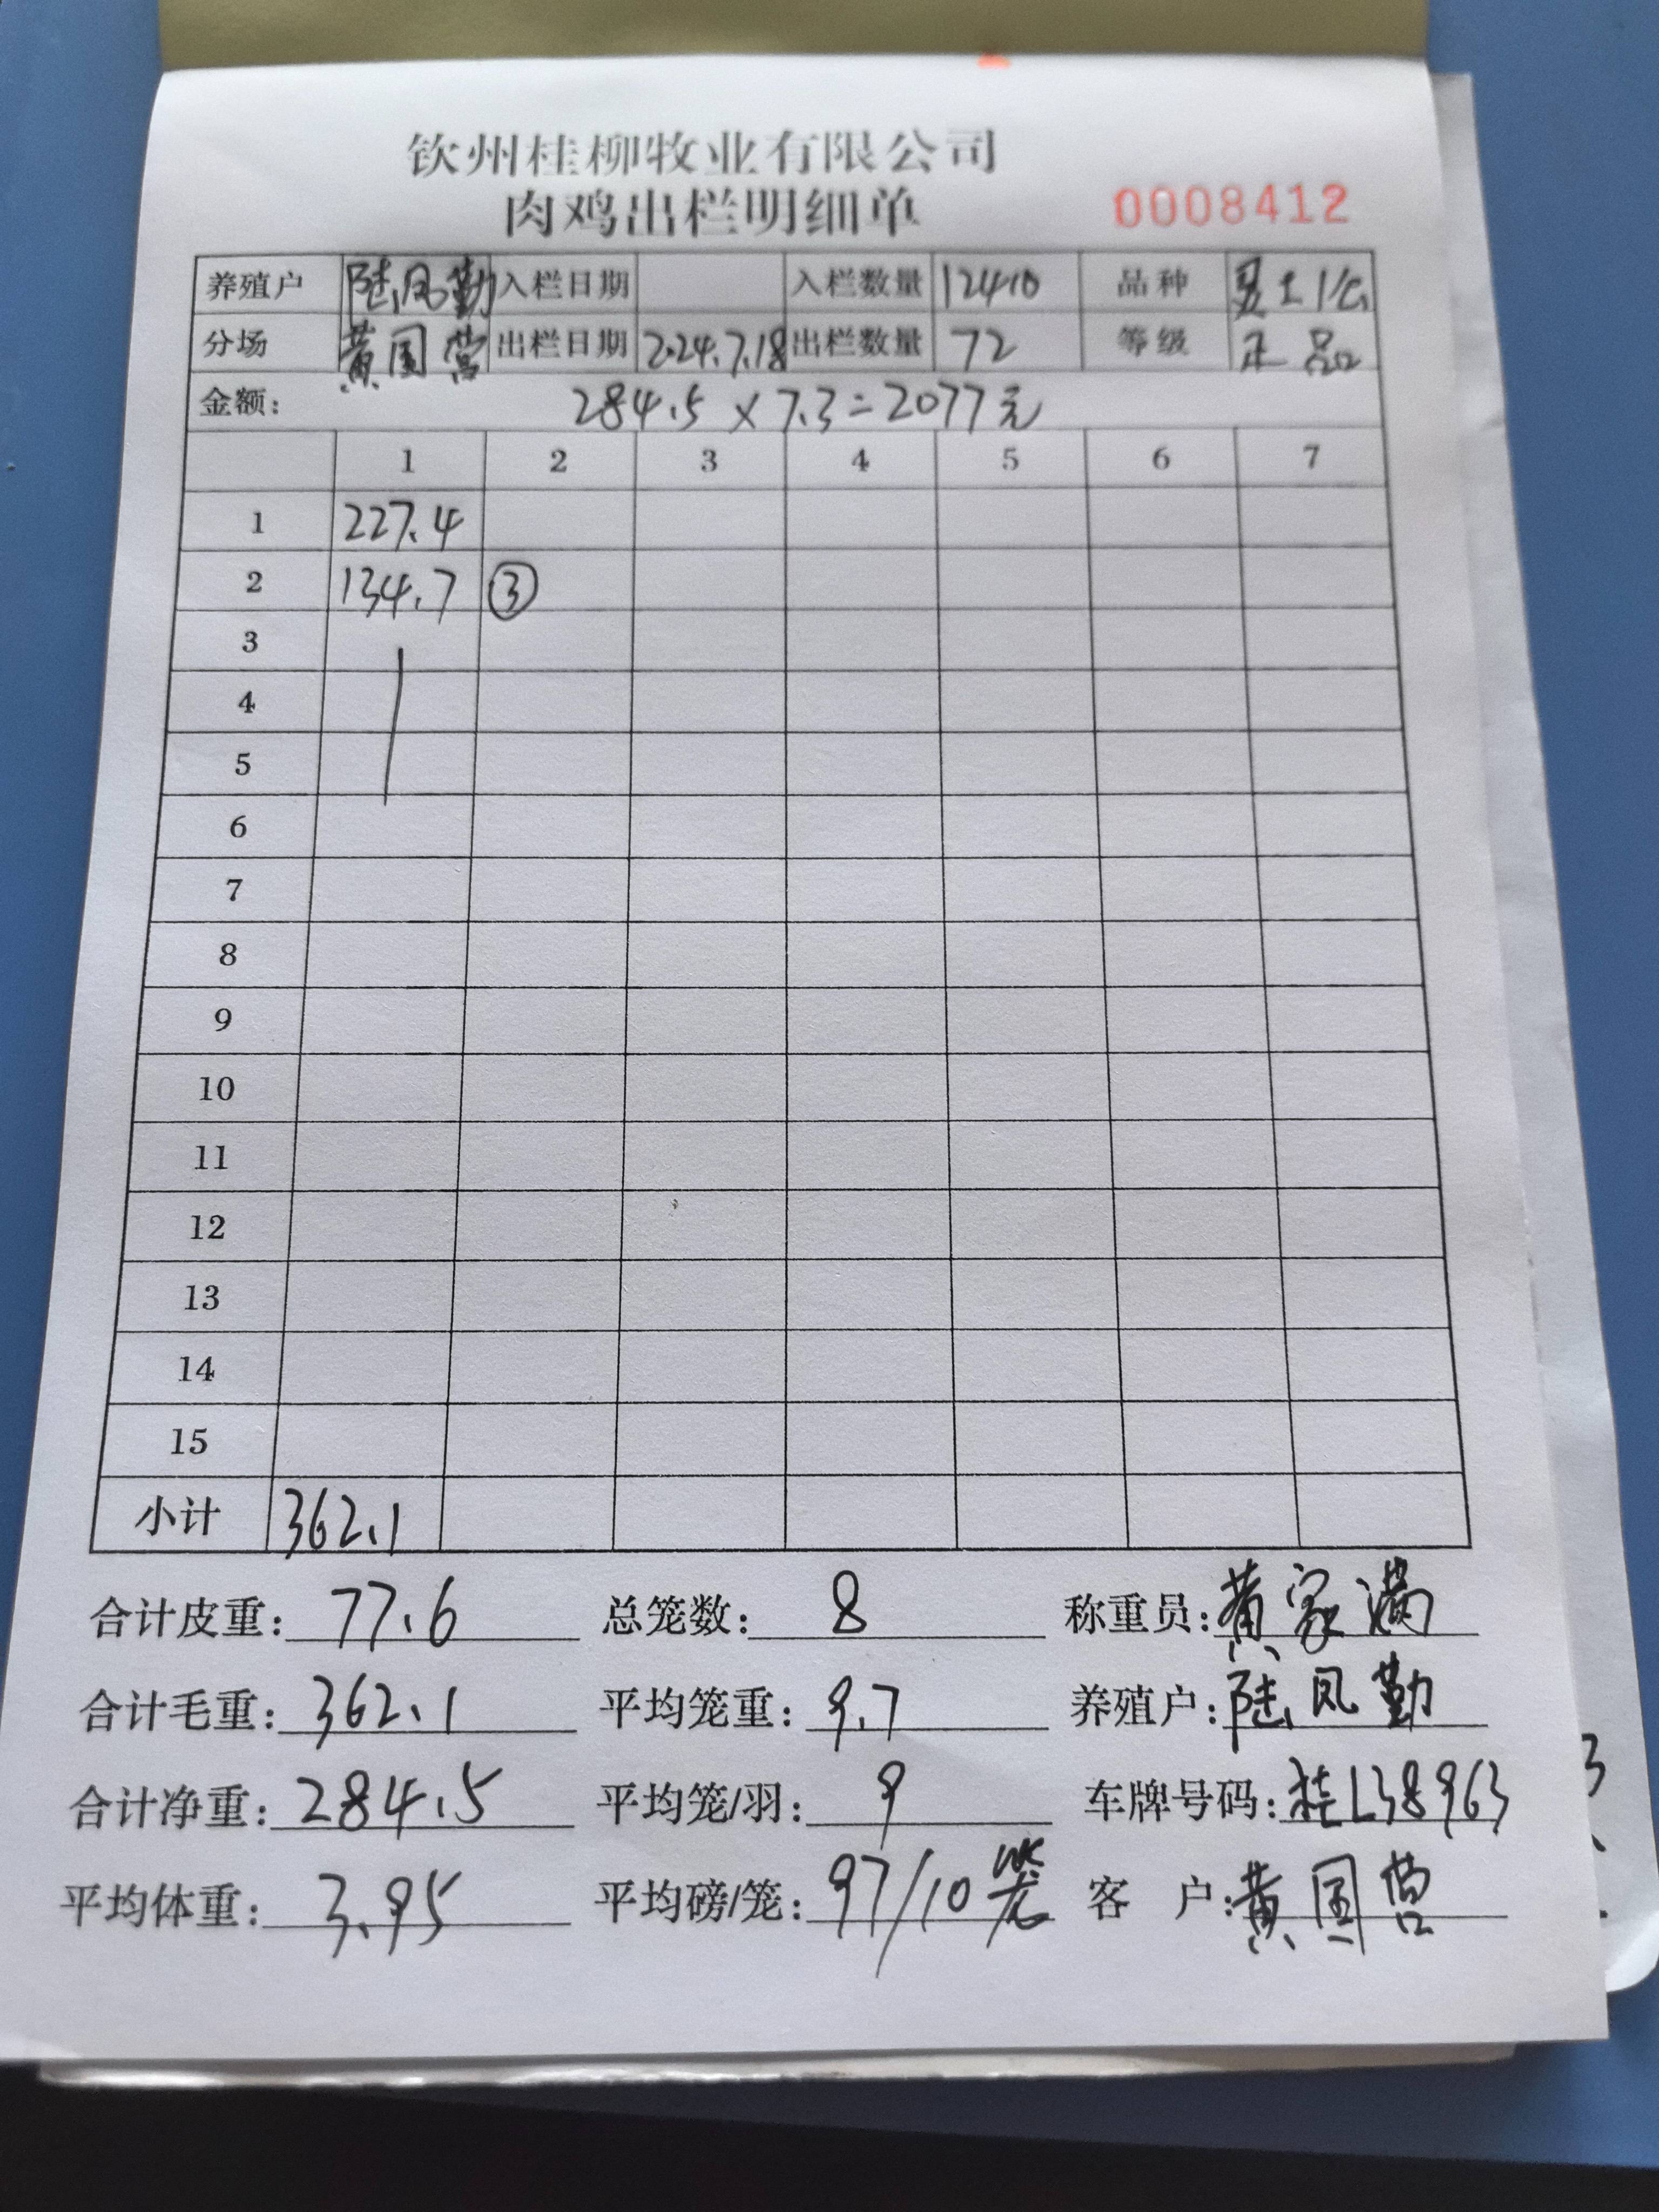 钦州桂柳牧业有限公司
肉鸡出栏明细单 0008412
养殖户 陆凤勤 入栏日期 入栏数量 12410 品种
分场 黄国营 出栏日期 2024.7.18 出栏数量 72 等级 正品
金额: 284.5 × 7.3 = 2077元
1 2 3 4 5 6 7
1 227.4
2 134.7 ③
3
4
5
6
7
8
9
10
11
12
13
14
15
小计 362.1
合计皮重: 77.6 总笼数: 8 称重员: 黄家满
合计毛重: 362.1 平均笼重: 9.7 养殖户: 陆凤勤
合计净重: 284.5 平均笼/羽: 9 车牌号码: 桂L38963
平均体重: 3.95 平均磅/笼: 97/10 客 户: 黄国营